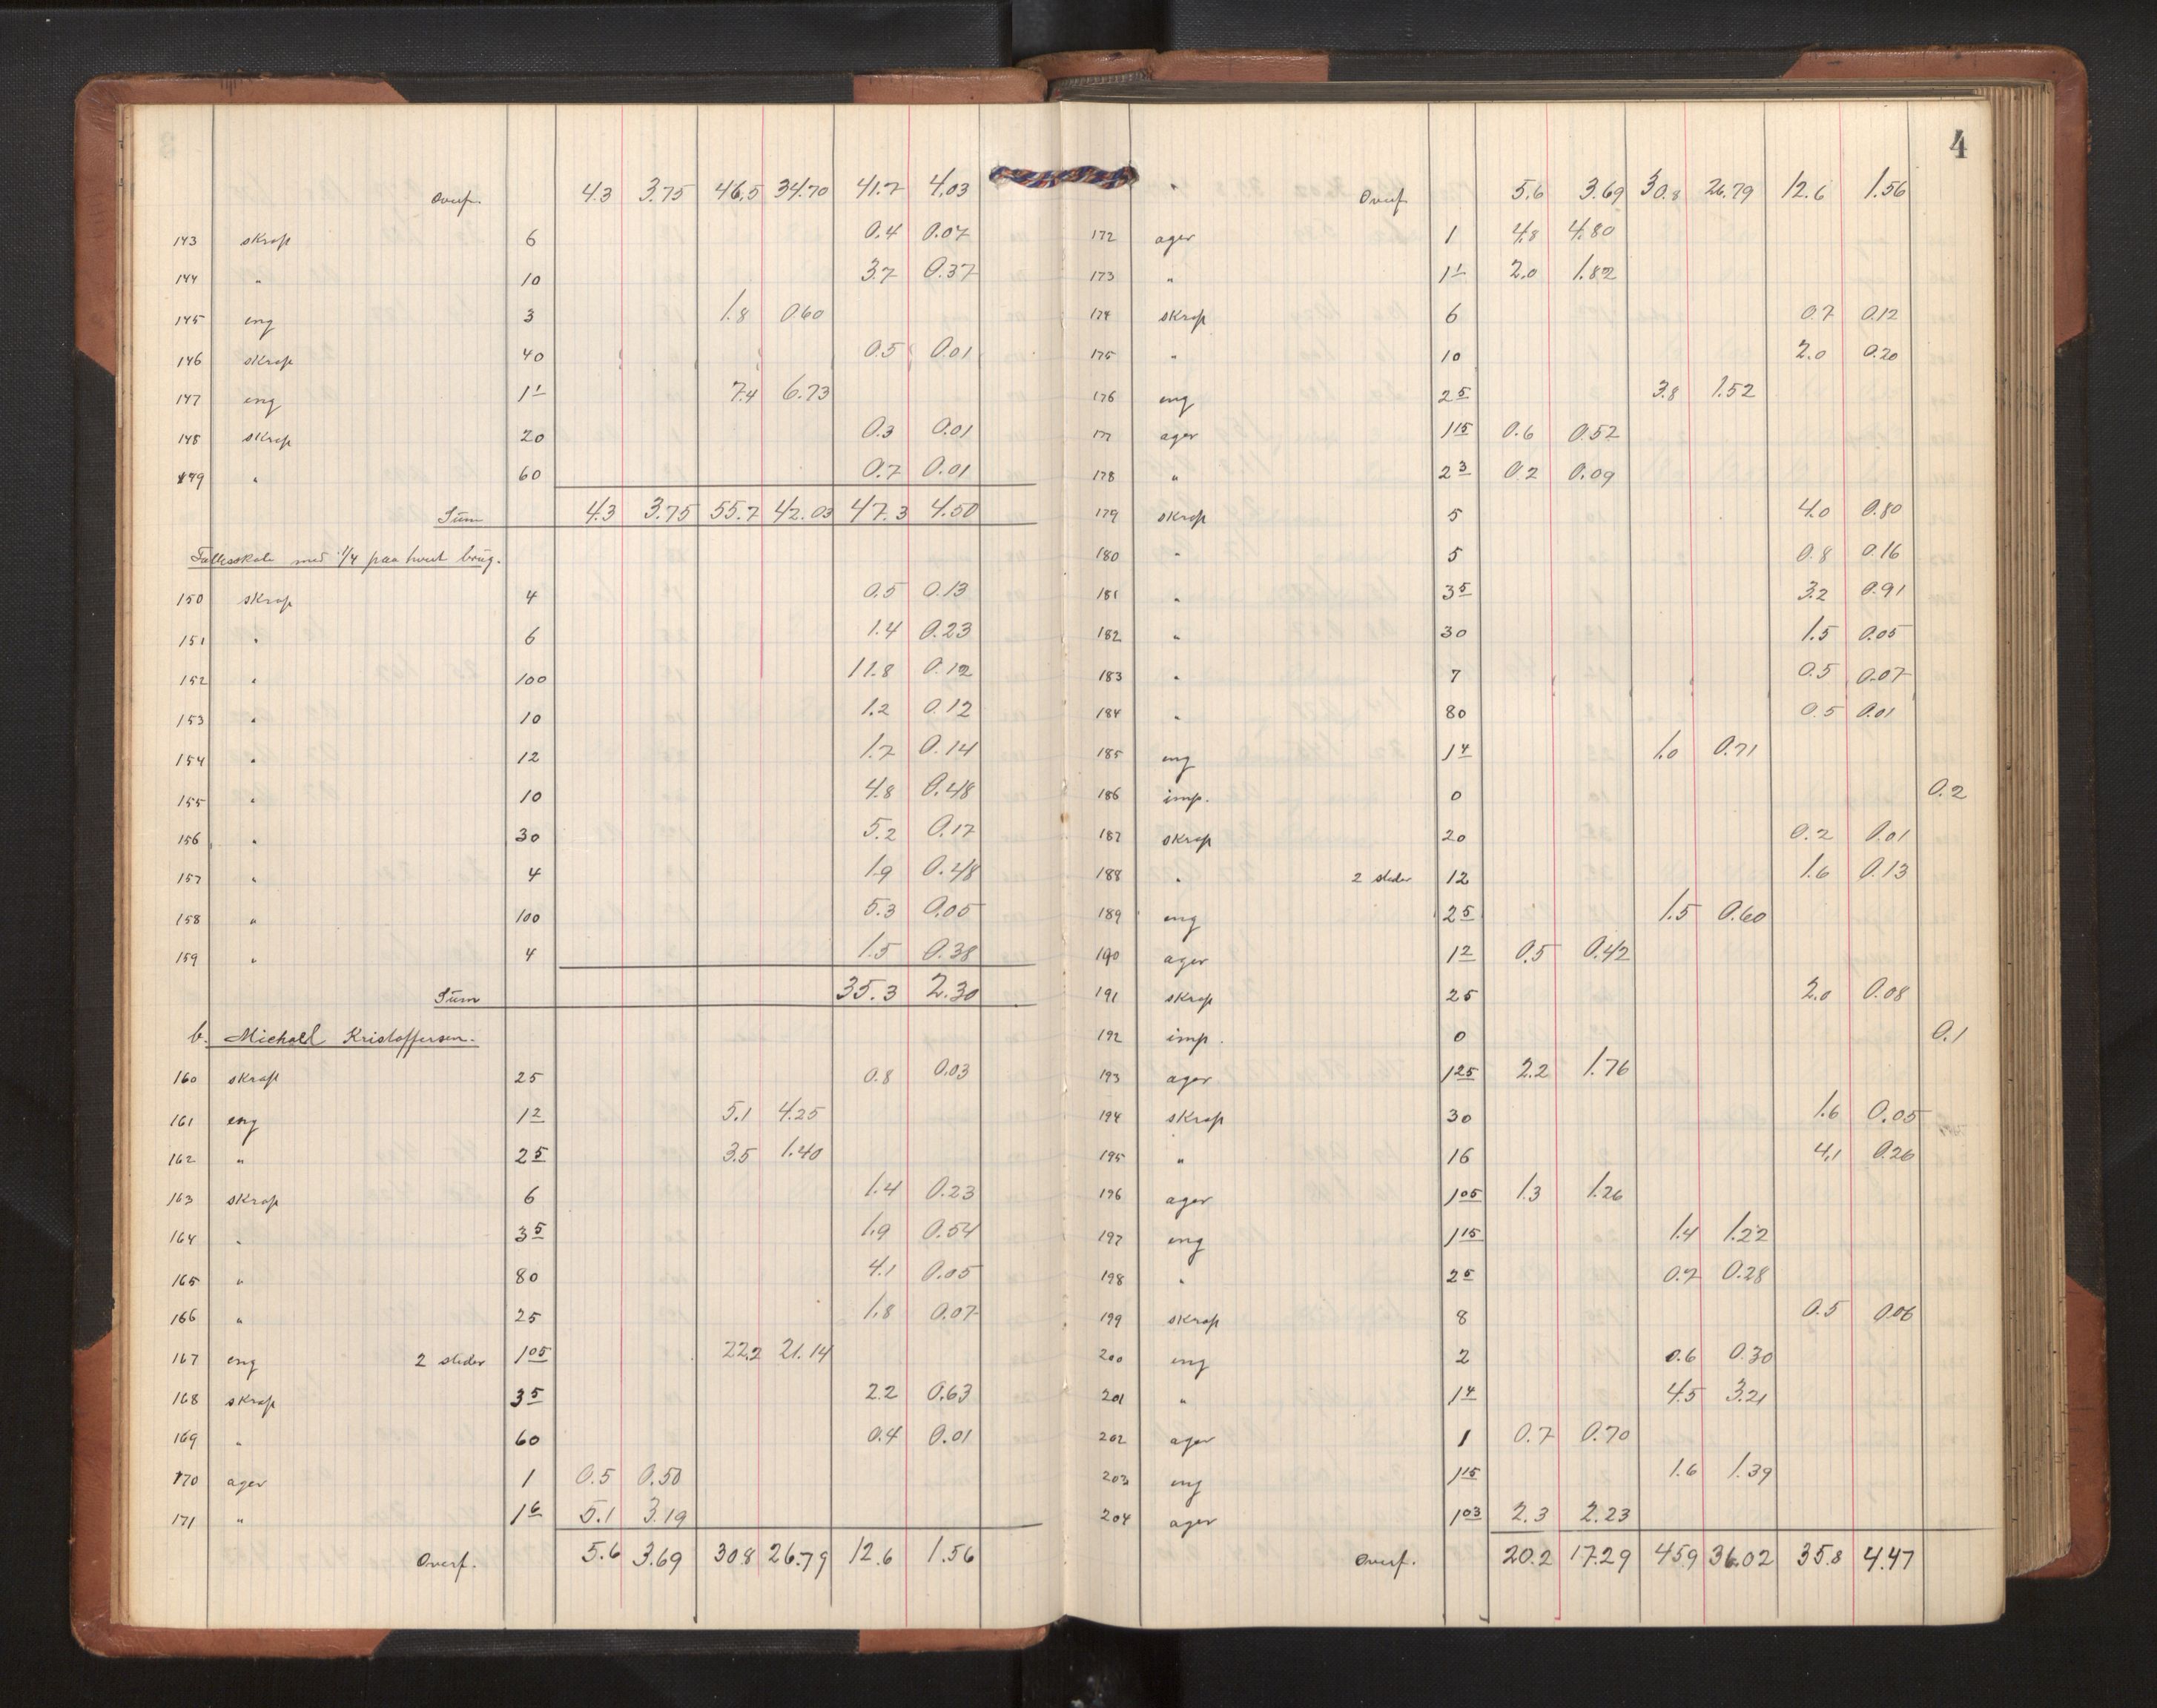 Overf. 4.3 3.75 46.5 34.70 41.7 4.03
143 skrap 6 0.4 0.07
144 " 10 3.7 0.37
145 eng 3 1.8 0.60
146 skrap 40 0.5 0.01
147 eng 1 1 7.4 6.73
148 skrap 20 0.3 0.01
149 " 60 0.7 0.01
Sum 4.3 3.75 55.7 42.03 47.3 4.50
med 1/4 paa hvert brug.
150 skrap 4 0.5 0.13
151 " 6 1.4 0.23
152 " 100 11.8 0.12
153 " 10 1.2 0.12
154 " 12 1.7 0.14
155 " 10 4.8 0.48
156 " 30 5.2 0.17
157 " 4 1.9 0.48
158 " 100 5.3 0.05
159 " 4 1.5 0.38
Sum 35.3 2.30
b. Michael Kristoffersen.
160 skrap 25 0.8 0.03
161 eng 1 2 5.1 4.25
162 " 2 5 3.5 1.40
163 skrap 6 1.4 0.23
164 " 3 5 1.9 0.54
165 " 80 4.1 0.05
166 " 25 1.8 0.07
167 eng 2 steder 1 05 22.2 21.14
168 skrap 3 5 2.2 0.63
169 " 60 0.4 0.01
170 ager 1 0.5 0.50
171 " 1 6 5.1 3.19
Overf. 5.6 3.69 30.8 26.79 12.6 1.56
4
" Overf 5.6 3.69 30.8 26.79 12.6 1.56
172 ager 1 4.8 4.80
173 " 1 1 2.0 1.82
174 skrap 6 0.7 0.12
175 " 10 2.0 0.20
176 eng 2 5 3.8 1.52
177 ager 1 15 0.6 0.52
178 " 2 3 0.2 0.09
179 skrap 5 4.0 0.80
180 " 5 0.8 0.16
181 " 3 5 3.2 0.91
182 " 30 1.5 0.05
183 " 7 0.5 0.07
184 " 80 0.5 0.01
185 eng 1 4 1.0 0.71
186 imp. 0 0.2
187 skrap 20 0.2 0.01
188 " 2 steder 12 1.6 0.13
189 eng 2 5 1.5 0.60
190 ager 1 2 0.5 0.42
191 skrap 25 2.0 0.08
192 imp. 0 0.1
193 ager 1 25 2.2 1.76
194 skrap 30 1.6 0.05
195 " 16 4.1 0.26
196 ager 1 05 1.3 1.26
197 eng 1 15 1.4 1.22
198 " 2 5 0.7 0.28
199 skrap 8 0.5 0.06
200 eng 2 0.6 0.30
201 " 1 4 4.5 3.21
202 ager 1 0.7 0.70
203 eng 1 15 1.6 1.39
204 ager 1 03 2.3 2.23
Overf. 20.2 17.29 45.9 36.02 35.8 4.47